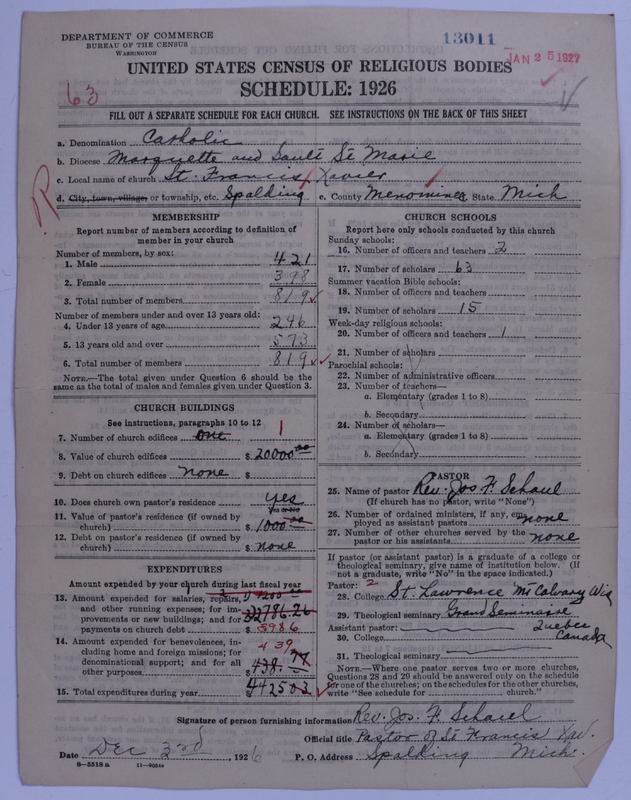 DEPARTMENT OF COMMERCE
BUREAU OF THE CENSUS
WASHINGTON
13011
JAN 25 1927
UNITED STATES CENSUS OF RELIGIOUS BODIES
SCHEDULE: 1926
63
FILL OUT A SEPARATE SCHEDULE FOR EACH CHURCH. SEE INSTRUCTIONS ON THE BACK OF THIS SHEET
a. Denomination Catholic
b. Diocese Marquette and Sault St Marie
c. Local name of church St. Francis Xavier
R
d. City, town, village, or township, etc. Spalding e. County Menominee State Mich
MEMBERSHIP
Report number of members according to definition of
member in your church
Number of members, by sex:
1. Male 421
2. Female 398
3. Total number of members 819
Number of members under and over 13 years old:
4. Under 13 years of age 246
5. 13 years old and over 573
6. Total number of members 819
NOTE.—The total given under Question 6 should be the
same as the total of males and females given under Question 3.
CHURCH BUILDINGS
See instructions, paragraphs 10 to 12
7. Number of church edifices one 1
8. Value of church edifices $ 20000 00
9. Debt on church edifices none $
10. Does church own pastor's residence yes
Yes or No
11. Value of pastor's residence (if owned by
church) $ 1000 00
12. Debt on pastor's residence (if owned by
church) $ none
EXPENDITURES
Amount expended by your church during last fiscal year
13. Amount expended for salaries, repairs, 1200
and other running expenses; for im-
provements or new buildings; and for 2786.26
payments on church debt $ 3986
14. Amount expended for benevolences, in- 439
cluding home and foreign missions; for
denominational support; and for all
other purposes $ 438.77
15. Total expenditures during year $ 442503
CHURCH SCHOOLS
Report here only schools conducted by this church
Sunday schools:
16. Number of officers and teachers 2
17. Number of scholars 63
Summer vacation Bible schools:
18. Number of officers and teachers
19. Number of scholars 15
Week-day religious schools:
20. Number of officers and teachers 1
21. Number of scholars
Parochial schools:
22. Number of administrative officers
23. Number of teachers—
a. Elementary (grades 1 to 8)
b. Secondary
24. Number of scholars—
a. Elementary (grades 1 to 8)
b. Secondary
PASTOR
25. Name of pastor Rev. Jos F. Schaul
(If church has no pastor, write "None")
26. Number of ordained ministers, if any, em-
ployed as assistant pastors none
27. Number of other churches served by the
pastor or his assistants none
If pastor (or assistant pastor) is a graduate of a college or
theological seminary, give name of institution below. (If
not a graduate, write "No" in the space indicated.)
Pastor: 2
28. College St. Lawrence Mt Calvary Wis
29. Theological seminary Grand Seminaire
Assistant pastor: Quebec
30. College Canada
31. Theological seminary
NOTE.—Where one pastor serves two or more churches,
Questions 28 and 29 should be answered only on the schedule
for one of the churches; on the schedules for the other churches,
write "See schedule for church."
Signature of person furnishing information Rev. Jos. F. Schaul
Official title Pastor of St Francis Xav.
Date Dec 3rd, 1926 P. O. Address Spalding Mich.
8—5518a